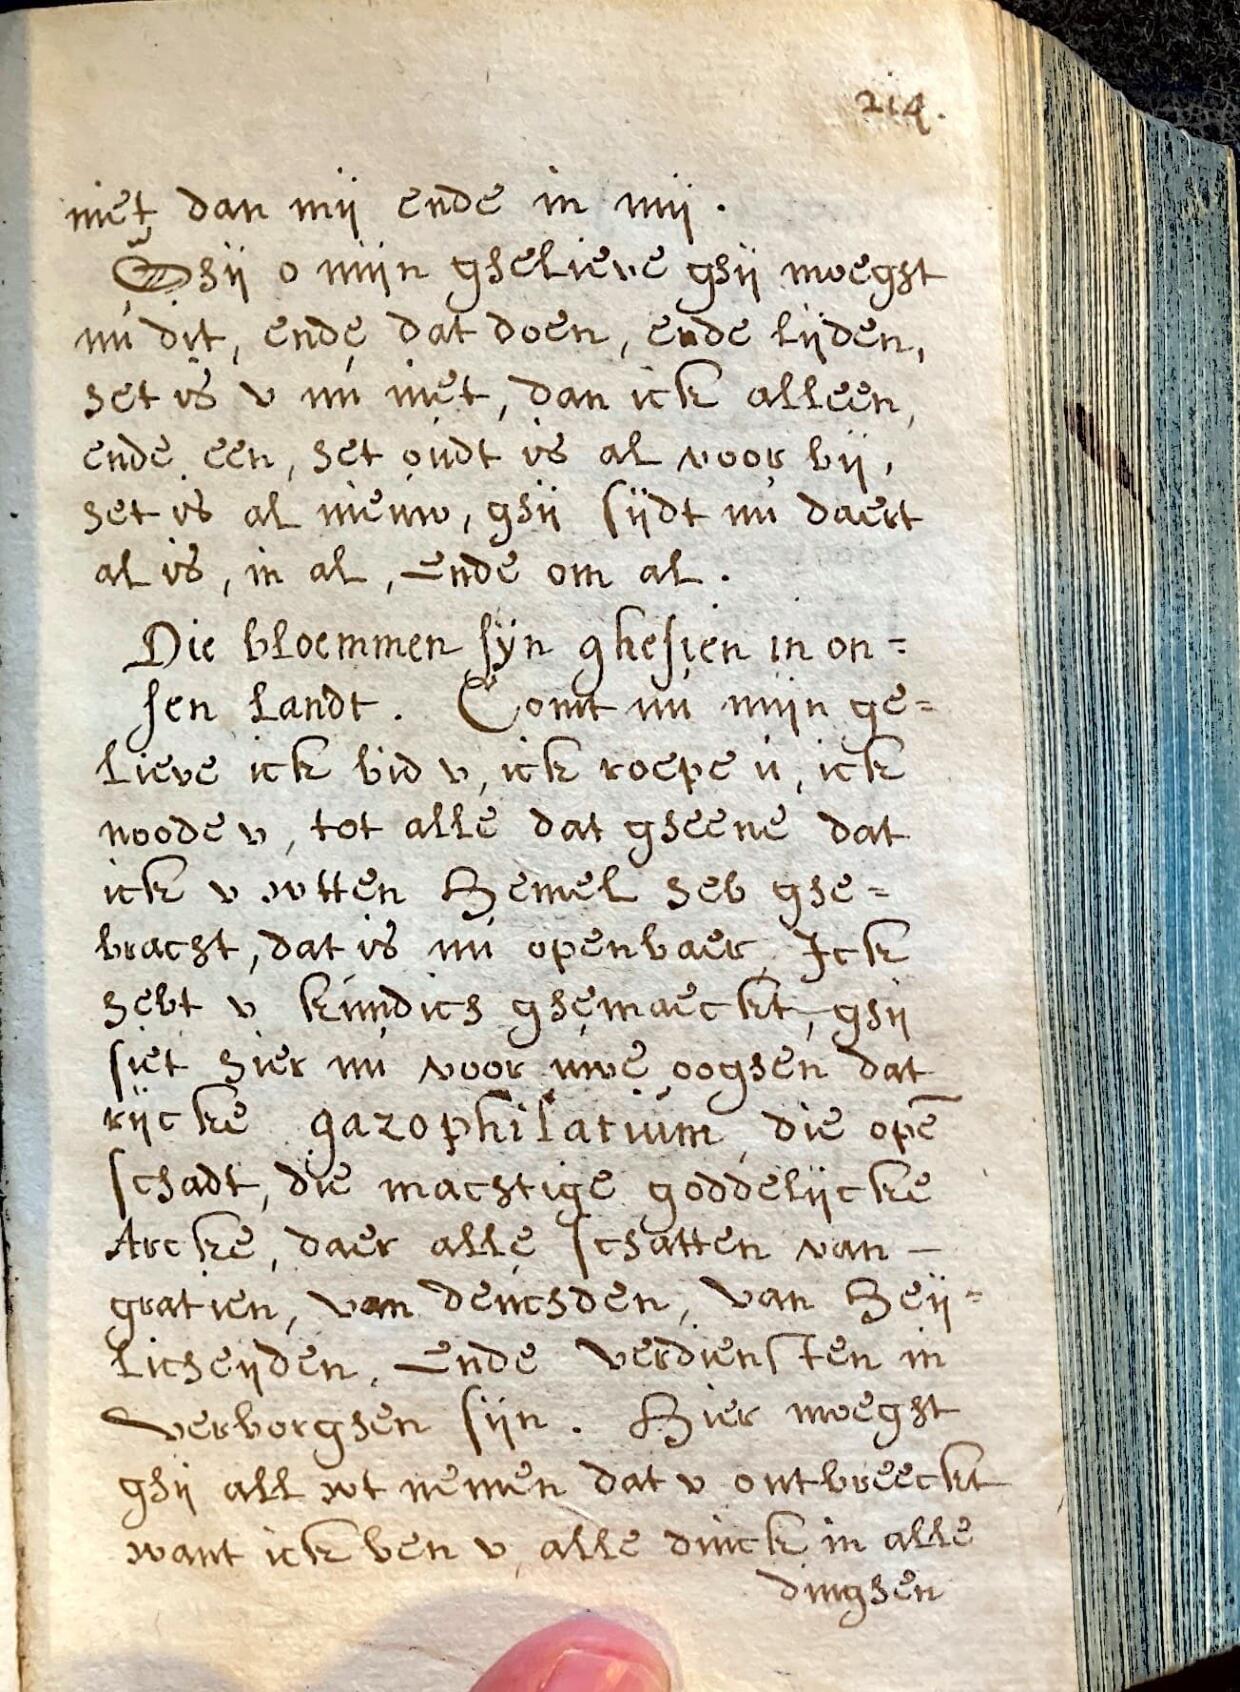 214.
niet dan mij ende in mij.
Ghij o mijn ghelieve ghij moeght
nu dit, ende dat doen, ende lijden,
het is v nu niet, dan ick alleen,
ende een, het oudt is al voor bij,
het is al nieuw, ghij sijdt nu daert
al is, in al, ende om al.
Die bloemmen sijn ghesien in on=
sen landt. Comt nu mijn ge=
lieve ick bid v, ick roepe u, ick
noode v, tot alle dat gheene dat
ick v wtten Hemel heb ghe=
bracht, dat is nu openbaer, Ick
hebt v kundich ghemaeckt, ghij
siet hier nu voor uwe ooghen dat
rijcke gazophilatium, die opē
schadt, die machtige goddelijcke
Arcke, daer alle schatten van –
gratien, van deuchden, van Heij=
licheijden, ende verdiensten in
verborghen sijn. Hier moeght
ghij all wt nemen dat v ontbreeckt
want ick ben v, alle dinck in alle
dinghen